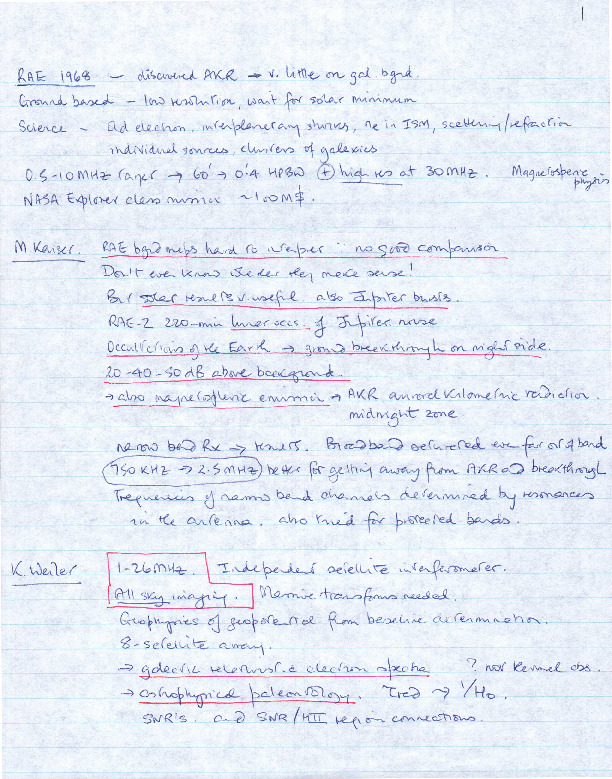 1
RAE 1968 — discovered AKR → v. little on gal bgnd.
Ground based – low resolution, wait for solar minimum
Science ~ Gal electron, interplanetary shocks, ne in ISM, scattering/refraction
individual sources, clusters of galaxies
0.5-10MHz range → 60' → 0.4 HPBW (+) high res at 30MHz. Magnetospheric physics
NASA Explorer class mission ~100M$.
M Kaiser. RAE bgnd maps hard to interpret ∵ no good comparison
Don't even know whether they make sense!
But solar results v. useful also Jupiter bursts.
RAE-2 220-min lunar occs. of Jupiter noise
Occultations of the Earth → ground breakthrough on night side.
20-40-50dB above background.
→ also magnetospheric emission → AKR auroral Kilometric radiation.
midnight zone
narrow band Rx → results. Broadband saturated even far out of band
750 KHz → 2.5MHz better for getting away from AKR and breakthrough
Frequencies of narrow band channels determined by resonances
in the antenna. also tried for protected bands.
K. Weiler 1-26MHz. Independent satellite interferometer.
All sky imaging. Massive transforms needed.
Geophysics of geopotential from baseline determination.
8-satellite array.
→ galactic relativistic electron spectra ? not Kennel obs.
→ astrophysical paleontology. Trad → 1/Ho.
SNR's. and SNR/HII region connections.